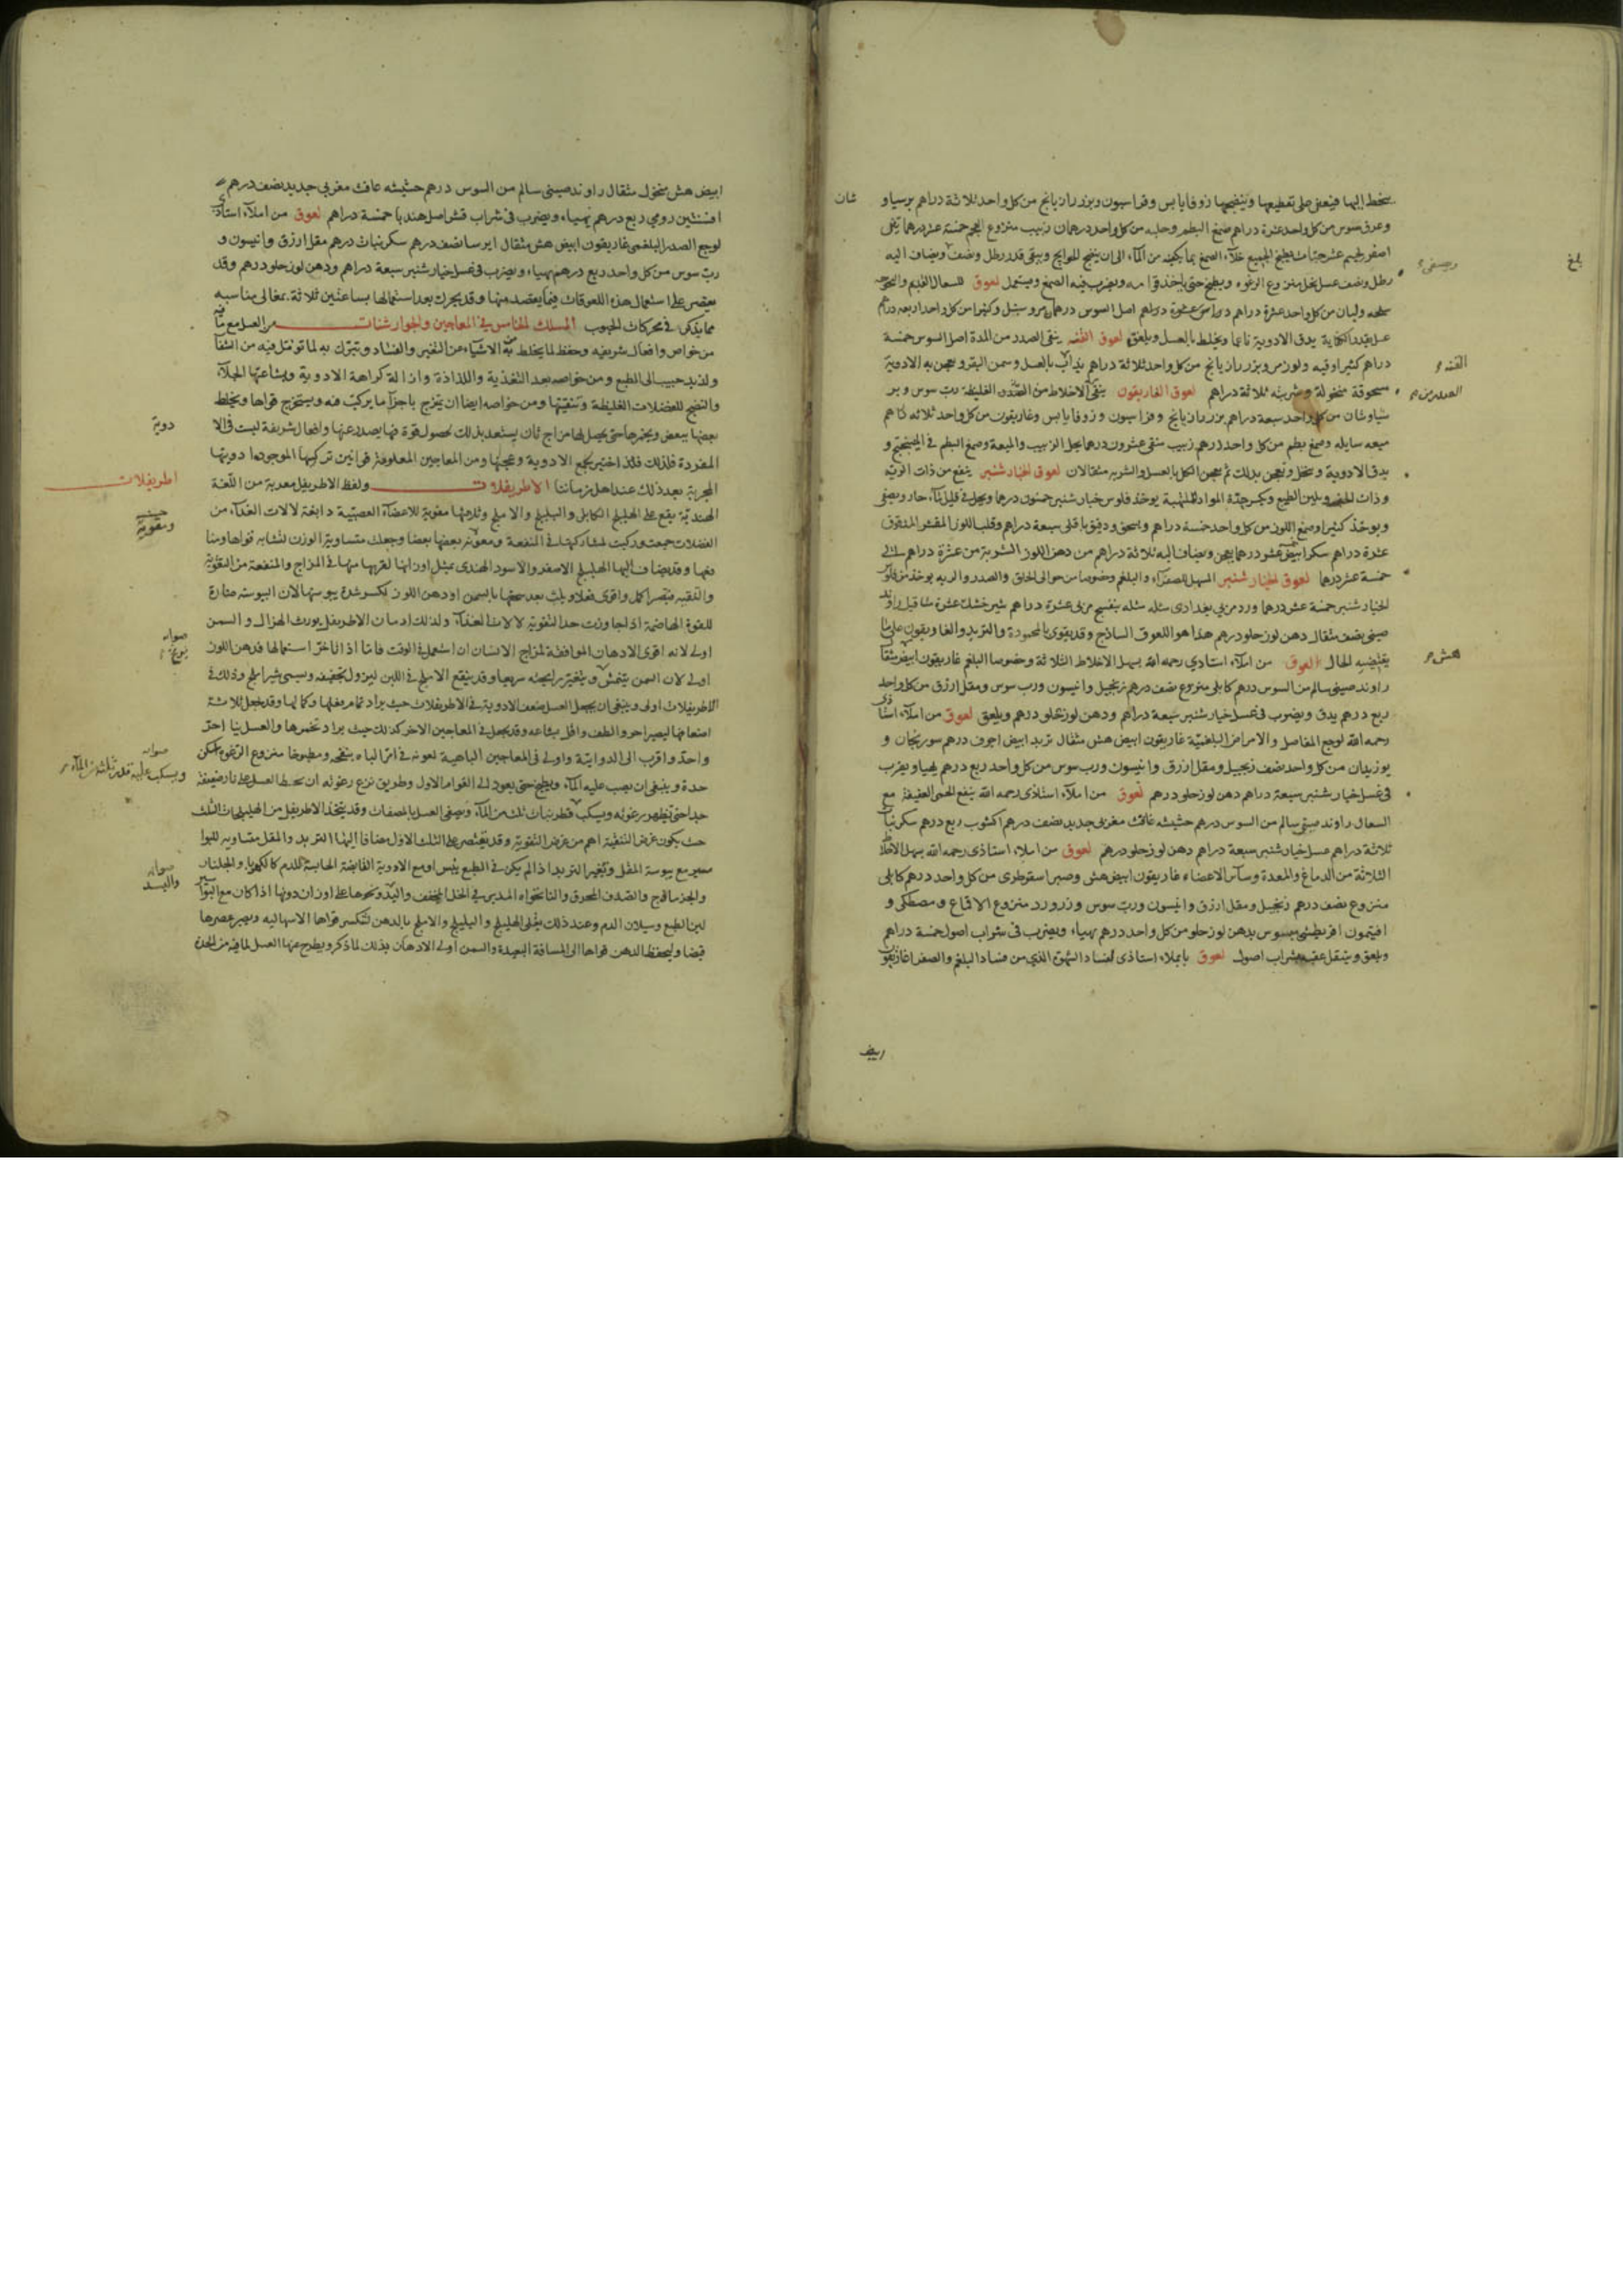 وعرق سوس من كل واحد عشرة دراهم صمغ البطم وحلبه من كل واحد درهمان زبيب منزوع العجم خمسة عشر درهما تين
اصفر لحيم عشر حبات يطبخ الجميع خلا الصمغ بما يكفيه من المآء الى ان ينضج الحوايج ويبقى قدر رطل ونصف ويضاف اليه
رطل ونصف عسل نحل منزوع الرغوه ويطبخ حتى ياخذ قوامه ويضرب فيه الصمغ ويستعمل لعوق للسعال القديم
عسل بقدر الكفاية يدق الادوية ناعما ويخلط بالعسل ويلعق لعوق القنه ينقى الصدر من المدة اصل السوس خمسة
دراهم كثيرا اوقيه ولوز مر وبزر رازيانج من كل واحد ثلاثة دراهم يذاب بالعسل وسمن البقر ويعجن به الادوية
مسحوقة منخولة وشربته ثلاثة دراهم لعوق الغاريقون ينقى الاخلاط من الصدر الغليظة رب سوس وبر
سياوشان من كل واحد سبعة دراهم بزر رازيانج وفراسيون وزوفا يابس وغاريقون من كل واحد ثلاثه دراهم
ميعه سايله وصمغ بطم من كل واحد درهم زبيب منقى عشرون درهما يحل الزبيب والميعة وصمغ البطم في الميبختج و
يدق الادوية وينخل ويعجن بذلك ثم يعجن الكل بالعسل والشربه مثقالان لعوق الخيار شنبر ينفع من ذات الريه
وذات الجنب ويلين الطبع ويكسر حدة المواد الملتهبة يوخذ فلوس خيار شنبر خمسون درهما ويحل في قليل مآء حار ويصفى
ويوخذ كثيرا وصمغ اللوز من كل واحد خمسة دراهم ويسحق ودقيق باقلى سبعة دراهم وقلب اللوز المقشر المدقوق
عشرة دراهم سكر ابيض عشر درهما يعجن ويضاف اليه ثلاثة دراهم من دهن اللوز الشربة من عشرة دراهم الى
خمسة عشر درهما لعوق الخيار شنبر المسهل للصفرآء والبلغم وخصوصا من حوالى الحلق والصدر والريه يوخذ من فلوس
الخيار شنبر خمسة عشر درهما ورد مربى بغدادى مثله مثله بنفسج مربى عشرة دراهم شير خشك عشرة مثاقيل راوند
صينى نصف مثقال دهن لوز حلو درهم هذا هو اللعوق الساذج وقد يقوى بالمحمودة والتربد والغاريقون على ما
يقتضيه الحال لعوق من املآء استاذي رحمه الله يسهل الاخلاط الثلاثة وخصوصا البلغم غاريقون ابيض مثقال
راوند صينى سالم من السوس درهم كابلى منزوع نصف درهم زنجبيل وانيسون ورب سوس ومقل ازرق من كل واحد
ربع درهم يدق ويضرب فى عسل خيار شنبر سبعة دراهم ودهن لوز حلو درهم ويلعق لعوق من املآء استاذى
رحمه الله لوجع المفاصل والامراض البلغميّة غاريقون ابيض هش مثقال تربد ابيض اجوف درهم سورنجان و
بوزيدان من كل واحد نصف زنجبيل ومقل ازرق وانيسون ورب سوس من كل واحد ربع درهم يهيا ويضرب
فى عسل خيار شنبر سبعة دراهم دهن لوز حلو درهم لعوق من املآء استاذى رحمه الله ينفع الحمى العفينة مع
السعال راوند صينى سالم من السوس درهم حشيشه غافث مغربى جديد نصف درهم اكشوب ربع درهم سكر نبات
ثلاثة دراهم عسل خيار شنبر سبعة دراهم دهن لوز حلو درهم لعوق من املاء استاذى رحمه الله يسهل الاخلاط
الثلاثة من الدماغ والمعدة وسآئر الاعضاء غاريقون ابيض هش وصبر اسقوطرى من كل واحد درهم كابلى
منزوع نصف درهم زنجبيل ومقل ازرق وانيسون ورب سوس وزر ورد منزوع الاقماع ومصطكى و
افيتمون اقريطشى مبسوس بدهن لوز حلو من كل واحد درهم يهياء ويضرب فى شراب اصول خمسة دراهم
ويلعق ويتنقل عقيبه بشراب اصول لعوق باملاء استاذى
ابيض
ابيض هش منخول مثقال راوند صينى سالم من السوس درهم حشيشه غافث مغربى جديد نصف درهم
افسنتين رومي ربع درهم يهياء ويضرب فى شراب قشر اصل هندبا خمسة دراهم لعوق من املآء استاذى
لوجع الصدر البلغمى غاريقون ابيض هش مثقال ايرسا نصف درهم سكر نبات درهم مقل ازرق وانيسون و
رب سوس من كل واحد ربع درهم يهياء ويضرب فى عسل خيار شنبر سبعة دراهم ودهن لوز حلو درهم وقد
يقتصر على استعمال هذه اللعوقات فيما يقصد منها وقد يحرك بعد استعمالها بساعتين ثلاثة بمغالى مناسبه
مما يذكر فى محركات الحبوب المسلك الخامس في المعاجين والجوارشنات من العسل مع ما فيه
من خواص وافعال شريفه وحفظ لما يخلط به من الاشيآء عن التغير والفساد وتبرك به لما نزل فيه من الشفا
ولذيذ حبيب الى الطبع ومن خواصه بعد التغذية واللذاذة وازالة كراهة الادوية وبشاعتها الجلآء
والنضج للفضلات الغليظة وتنقيتها ومن خواصه ايضا ان يمزج باجزآء ما يركب منه ويستخرج قواها ويخلط
بعضها ببعض ويخمرها حتى يحصل لها مزاج ثان يستعد بذلك لحصول قوة فيها يصدر عنها افعال شريفة ليست فى الا
المفردة فلذلك اختير لجمع الادوية وعجنها ومن المعاجين المعلومة قوانين تركيبها الموجود ادويتها
المجربة بعد ذلك عند اهل زماننا الاطريفلات ولفظ الاطريفل معربة من اللغة
الهندية يقع على الهليلج الكابلى والبليلج والاملج وثلاثتها مقوية للاعضآء العصبية دابغة لالات الغذآء من
الفضلات جمعت وركبت لمشاركتها فى المنفعة ومعونة بعضها بعضا وجعلت متساوية الوزن لتشابه قواها ومنا
فعها وقد يضاف اليها الهليلج الاصفر والاسود الهندى بمثل اوزانها لقربها منها فى المزاج والمنفعة من التقوية
والتنقيه فيصير اكمل واقوى فعلا ويلت بعد سحقها بالسمن او دهن اللوز لكسر شدة يبوستها لان اليبوسه ضارة
للقوة الهاضمة اذا جاوزت حد التقوية لالات الغذآء ولذلك ادمان الاطريفل يورث الهزال والسمن
اولى لانه اقوى الادهان الموافقة لمزاج الانسان ان استعمل فى الوقت فاما اذا تاخر استعمالها فدهن اللوز
اولى لان السمن يتمشى ويتغير رايحته سريعا وقد ينقع الاملج فى اللبن ليزول تجفيفه ويسمى شير املج وذلك فى
الاطريفلات اولى وينبغى ان يجعل العسل ضعف الادوية فى الاطريفلات حيث يراد تمام فعلها وكمالها وقد يجعل ثلاثة
اضعافها ليصير احر والطف واقل بشاعه وقد يجعل فى المعاجين الاخر كذلك حيث يراد تخمرها والعسل نيا احر
واحد واقرب الى الدوايية واولى فى المعاجين الباهية لعونه فى امر الباه بنفخه ومطبوخا منزوع الرغوه اسكن
حدة وينبغى ان يصب عليه المآء ويطبخ حتى يعود الى القوام الاول وطريق نزع رغوته ان يحط العسل على نار ضعيفة
جدا حتى يظهر رغوته ويسكب ثلث من المآء ويصفى العسل بالمصفات وقد يتخذ الاطريفل من الهليلجات الثلث
حيث يكون غرض التنقية اهم من غرض التقوية وقد يقتصر على الثلث الاول مضافا اليها التربد والمقل متساويه للبوا
سير مع يبوسة المقل وبغير التربد اذا لم يكن فى الطبع يبس او مع الادوية القابضة الحابسة للدم كالكهربا والجلنار
والجزمازج والصدف المحرق والنانخواه المدبر فى الخل المجفف والبسد ونحوها على اوزان دونها اذا كان مع البواسير
لين الطبع وسيلان الدم وعند ذلك يقلى الهليلج والبليلج والاملج بالدهن لتنكسر قواها الاسهاليه ويصير عصرها
قبضا وليحفظ الدهن قواها الى المسافة البعيدة والسمن اولى الادهان بذلك لما ذكر ويطرح عنها العسل لما فيه من الحدة
شان
بلغ
القنه
هش
دوية
اطريفلات
ومقوية
صوابه
صوابه
ويسكب عليه قدر ثلثه من المآء
صوابه
والبسد